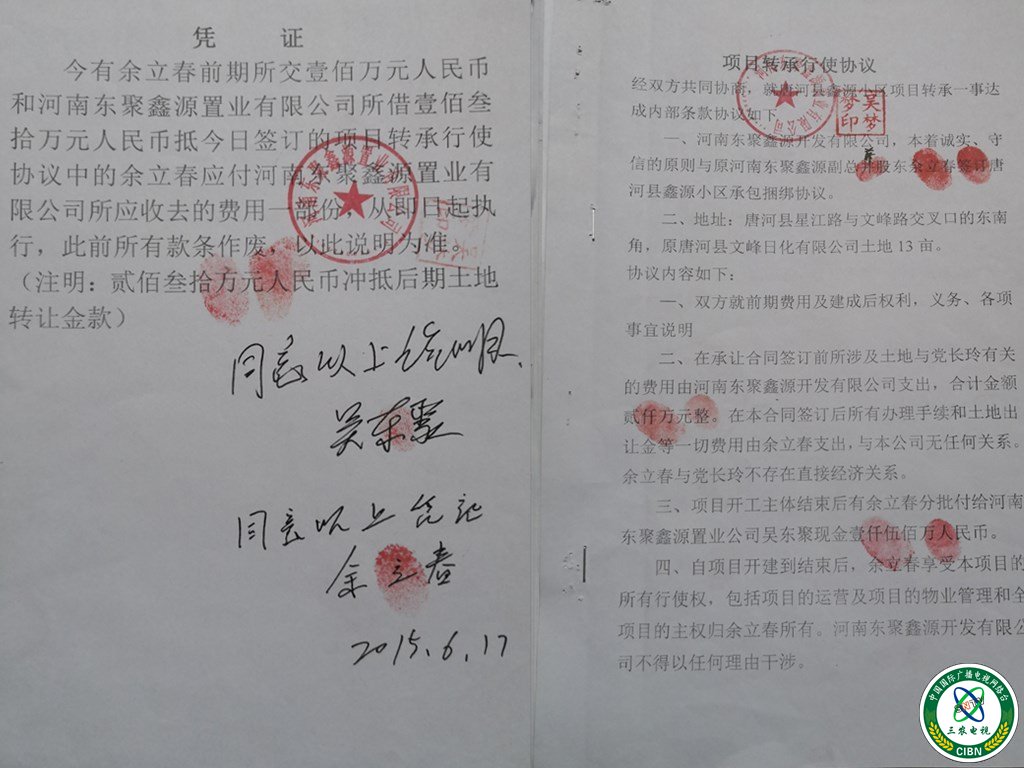 凭 证
今有余立春前期所交壹佰万元人民币
和河南东聚鑫源置业有限公司所借壹佰叁
拾万元人民币抵今日签订的项目转承行使
协议中的余立春应付河南东聚鑫源置业有
限公司所应收去的费用一部份，从即日起执
行，此前所有款条作废，以此说明为准。
（注明：贰佰叁拾万元人民币冲抵后期土地
转让金款）
同意以上
吴东聚
同意以上凭证
余立春
2015.6.17
项目转承行使协议
经双方共同协商，就唐河县鑫源小区项目转承一事达
成内部条款协议如下
吴梦
梦印
一、河南东聚鑫源开发有限公司，本着诚实、守
信的原则与原河南东聚鑫源副总并股东余立春签订唐
河县鑫源小区承包捆绑协议。
二、地址：唐河县星江路与文峰路交叉口的东南
角，原唐河县文峰日化有限公司土地 13 亩。
协议内容如下：
一、双方就前期费用及建成后权利，义务、各项
事宜说明
二、在承让合同签订前所涉及土地与党长玲有关
的费用由河南东聚鑫源开发有限公司支出，合计金额
贰仟万元整。在本合同签订后所有办理手续和土地出
让金等一切费用由余立春支出，与本公司无任何关系。
余立春与党长玲不存在直接经济关系。
三、项目开工主体结束后有余立春分批付给河南
东聚鑫源置业公司吴东聚现金壹仟伍佰万人民币。
四、自项目开建到结束后，余立春享受本项目的
所有行使权，包括项目的运营及项目的物业管理和全
项目的主权归余立春所有。河南东聚鑫源开发有限公
司不得以任何理由干涉。
中国国际广播电视网络台
三农电视
CIBN